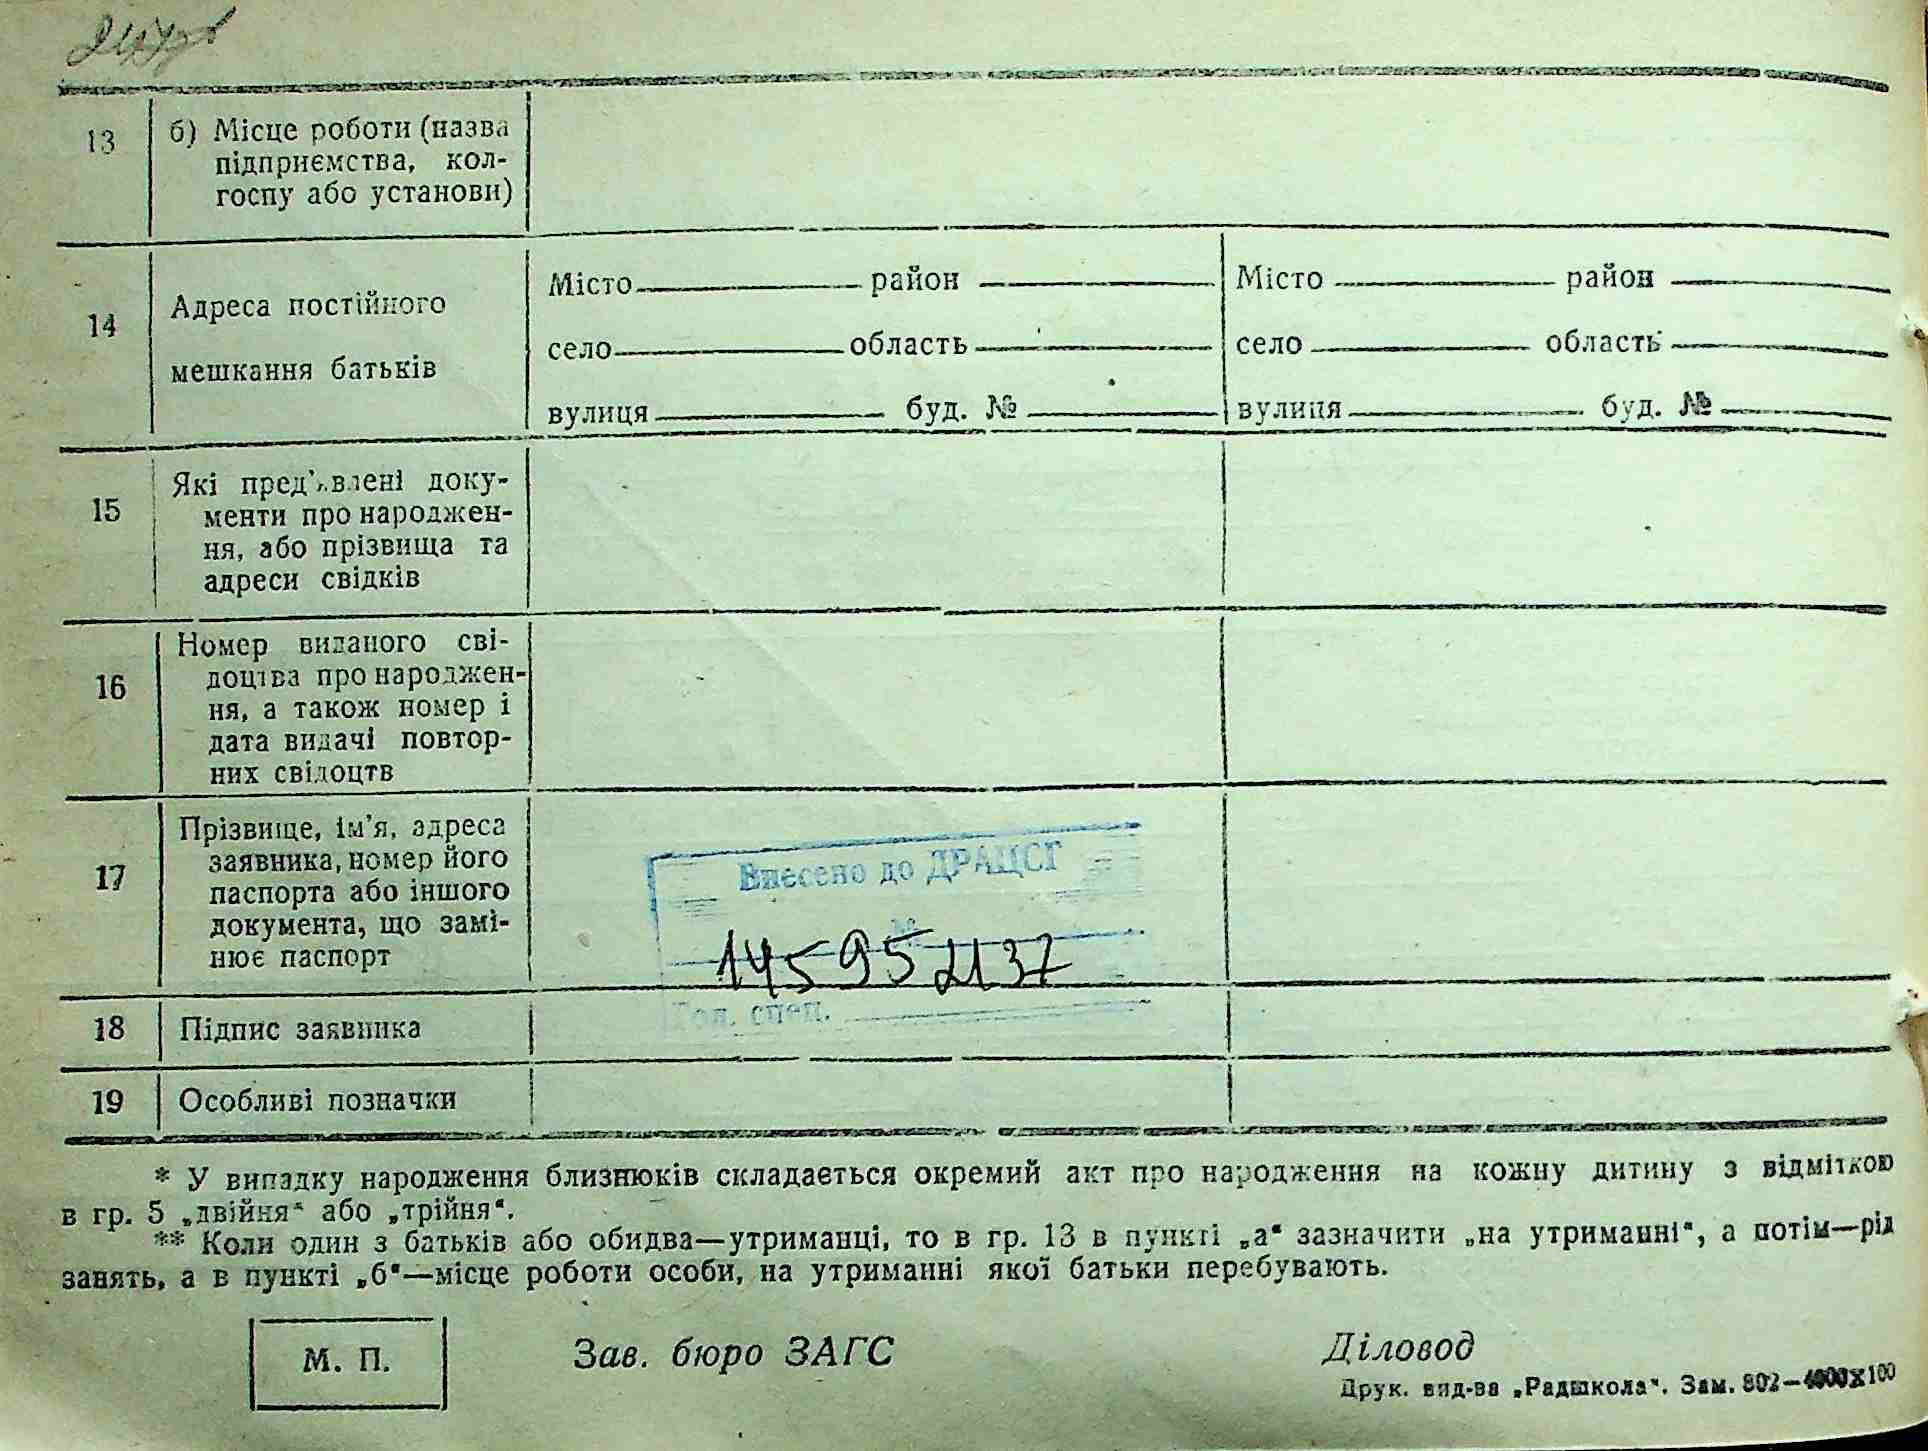 13
б) Місце роботи (назва
підприємства, кол-
госпу або установи)
14
Адреса постійного
мешкання батьків
Місто район
село область
вулиця буд. №
Місто район
село область
вулиця буд. №
15
Які пред’явлені доку-
менти про народжен-
ня, або прізвища та
адреси свідків
16
Номер виданого сві-
доцтва про народжен-
ня, а також номер і
дата видачі повтор-
них свідоцтв
17
Прізвище, ім’я, адреса
заявника, номер його
паспорта або іншого
документа, що замі-
нює паспорт
Внесено до ДРАЦСГ
№
Гол. спец.
18
Підпис заявника
19
Особливі позначки
* У випадку народження близнюків складається окремий акт про народження на кожну дитину з відміткою
в гр. 5 „двійня“ або „трійня“.
** Коли один з батьків або обидва—утриманці, то в гр. 13 в пункті „а“ зазначити „на утриманні“, а потім—рід
занять, а в пункті „б“—місце роботи особи, на утриманні якої батьки перебувають.
М. П.
Зав. бюро ЗАГС
Діловод
Друк. вид-ва „Радшкола“. Зам. 802—4000X100